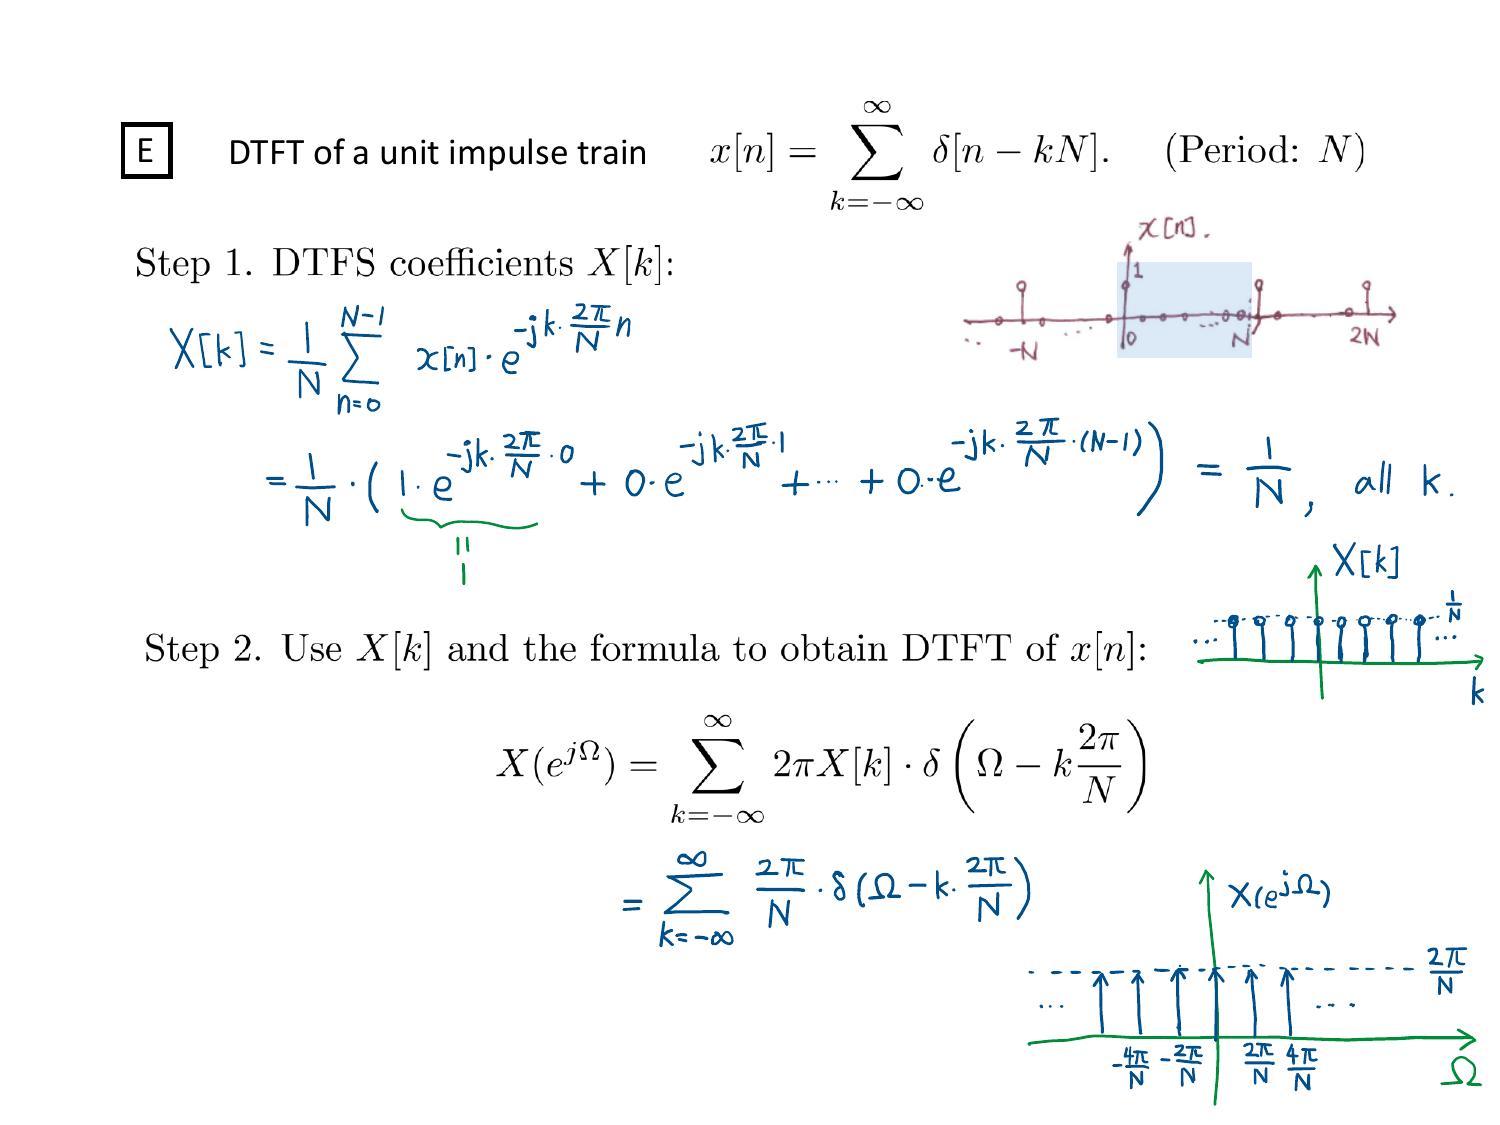 E DTFT of a unit impulse train x[n] = ∑_{k=−∞}^{∞} δ[n − kN]. (Period: N)
x[n].
1
-N 0 N 2N
Step 1. DTFS coefficients X[k]:
X[k] = 1/N ∑_{n=0}^{N-1} x[n] · e^{-jk·2π/N n}
= 1/N · (1·e^{-jk·2π/N·0} + 0·e^{-jk·2π/N·1} + ··· + 0·e^{-jk·2π/N·(N-1)}) = 1/N, all k.
= 1
X[k]
1/N
... ...
k
Step 2. Use X[k] and the formula to obtain DTFT of x[n]:
X(e^{jΩ}) = ∑_{k=−∞}^{∞} 2πX[k] · δ(Ω − k 2π/N)
= ∑_{k=-∞}^{∞} 2π/N · δ(Ω - k· 2π/N)
X(e^{jΩ})
2π/N
... ...
-4π/N -2π/N 2π/N 4π/N
Ω